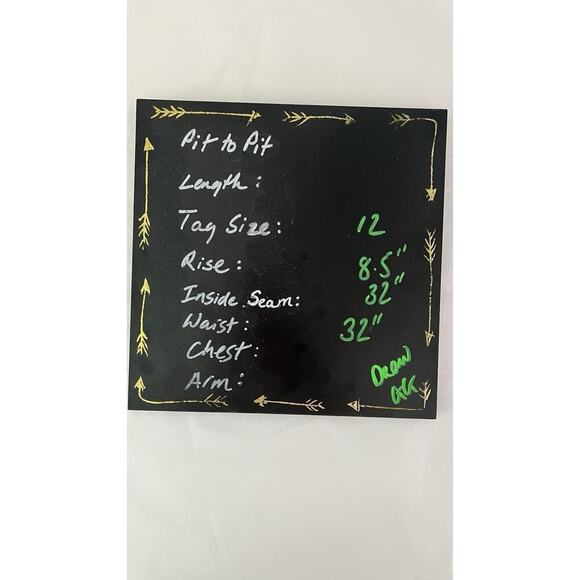 Pit to Pit
Length :
Tag Size: 12
Rise : 8.5"
Inside Seam: 32"
Waist : 32"
Chest :
Arm :